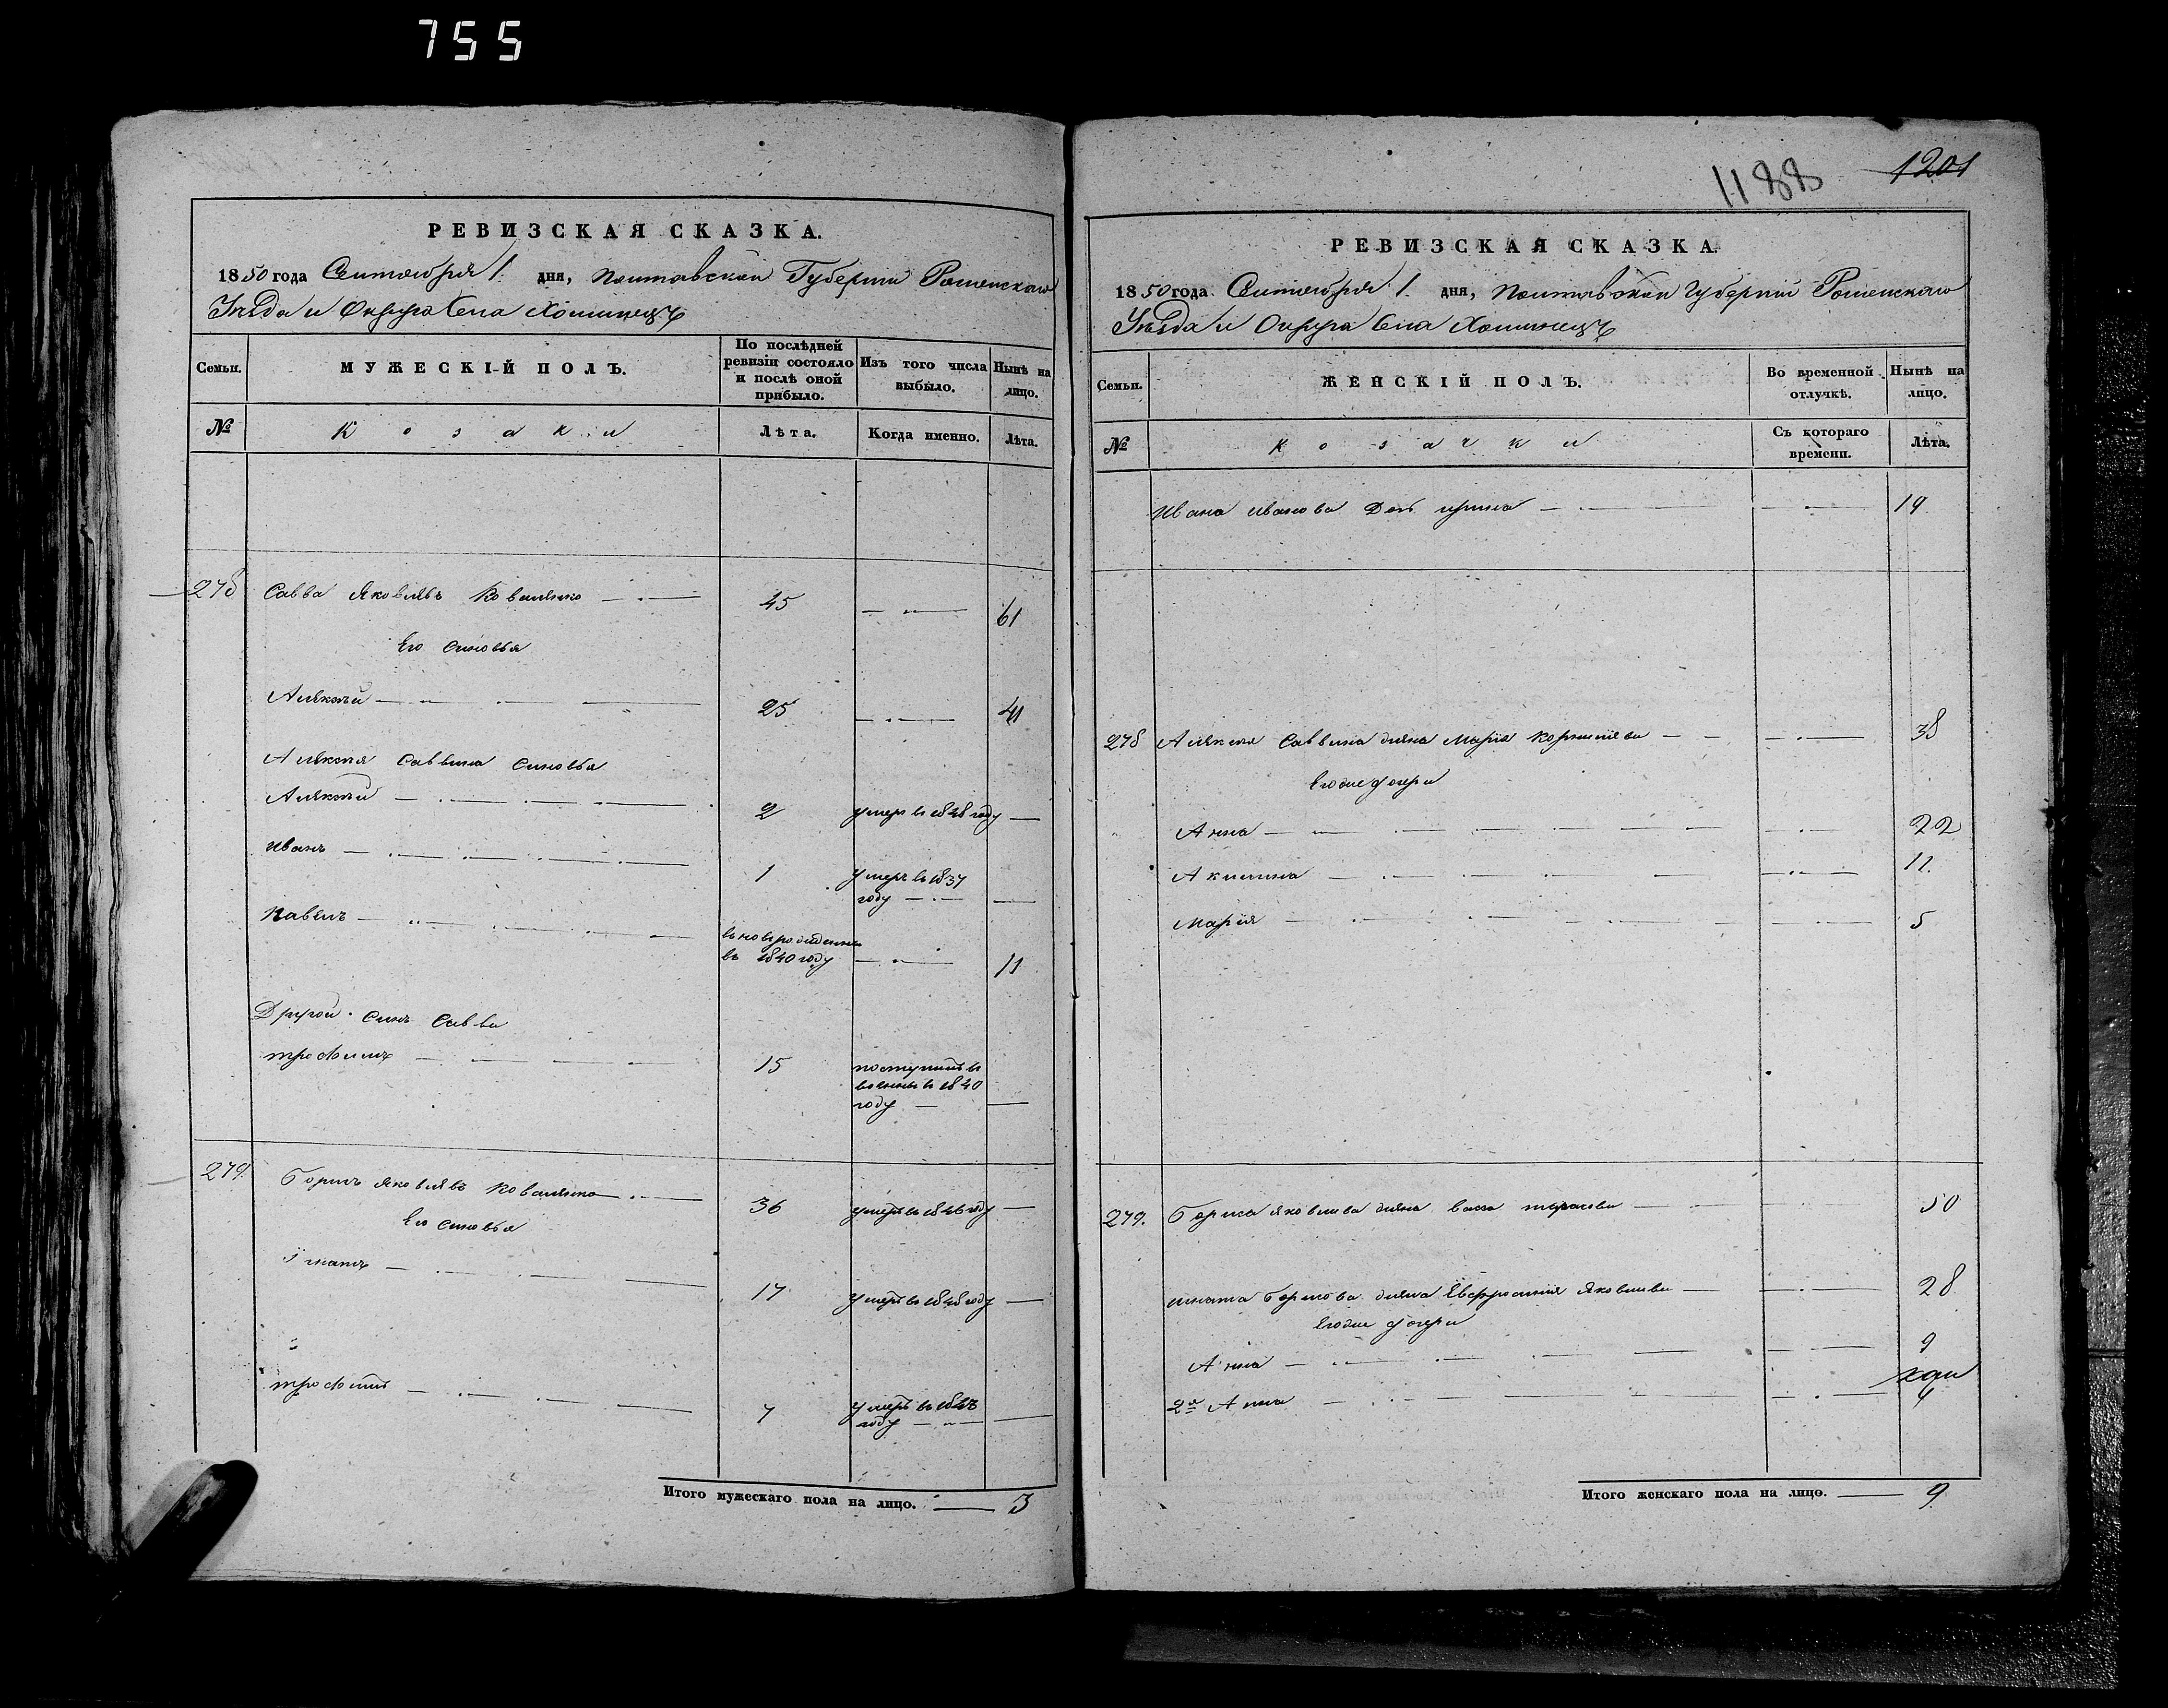 755
РЕВИЗСКАЯ СКАЗКА.
1850 года Сентября 1. дня, Полтавской Губернии Роменскаго
Уѣзда и Округа Села Хоминецъ
Семьи. МУЖЕСКІЙ ПОЛЪ. По послѣдней ревизіи состояло и послѣ оной прибыло. Изъ того числа выбыло. Нынѣ на лицо.
№ Козаки Лѣта. Когда именно. Лѣта.
278 Савва Яковлѣвъ Ковалѣнко 45 61
Его синовья
Алѣксѣй 25 41
Алѣксѣя Саввина синовья
Алѣксѣй 2 умеръ в 1848 году
Иванъ 1 умеръ в 1837
году
Павѣлъ
в 1840 году 11
Другой синъ Саввы
трофимъ 15 поступилъ в
в 1840
году
279. Борисъ Яковлѣвъ Ковалѣнко 36 умеръ в 1846 году
Его синовья
Ігнатъ 17 умеръ в 1848 году
трофимъ 7 умеръ в
году
Итого мужескаго пола на лицо. 3
1188 1201
РЕВИЗСКАЯ СКАЗКА.
1850 года Сентября 1. дня, Полтавской Губерніи Роменскаго
Уѣзда и Округа Села Хоминецъ
Семьи. ЖЕНСКІЙ ПОЛЪ. Во временной отлучкѣ. Нынѣ на лицо.
№ Козачки Съ котораго времени. Лѣта.
Ивана иванова Доч ирина 19
278 Алѣксѣя Саввина жѣна Марія Корнилѣва 38
Егоже дочери
Анна 22
Акилина 12.
Марія 5
279. Бориса яковлева жѣна васса тарасова 50
игната борисова жѣна Евфросинія Яковлева 28
Егоже дочери
Анна 9
2я Анна 4
Итого женскаго пола на лицо. 9